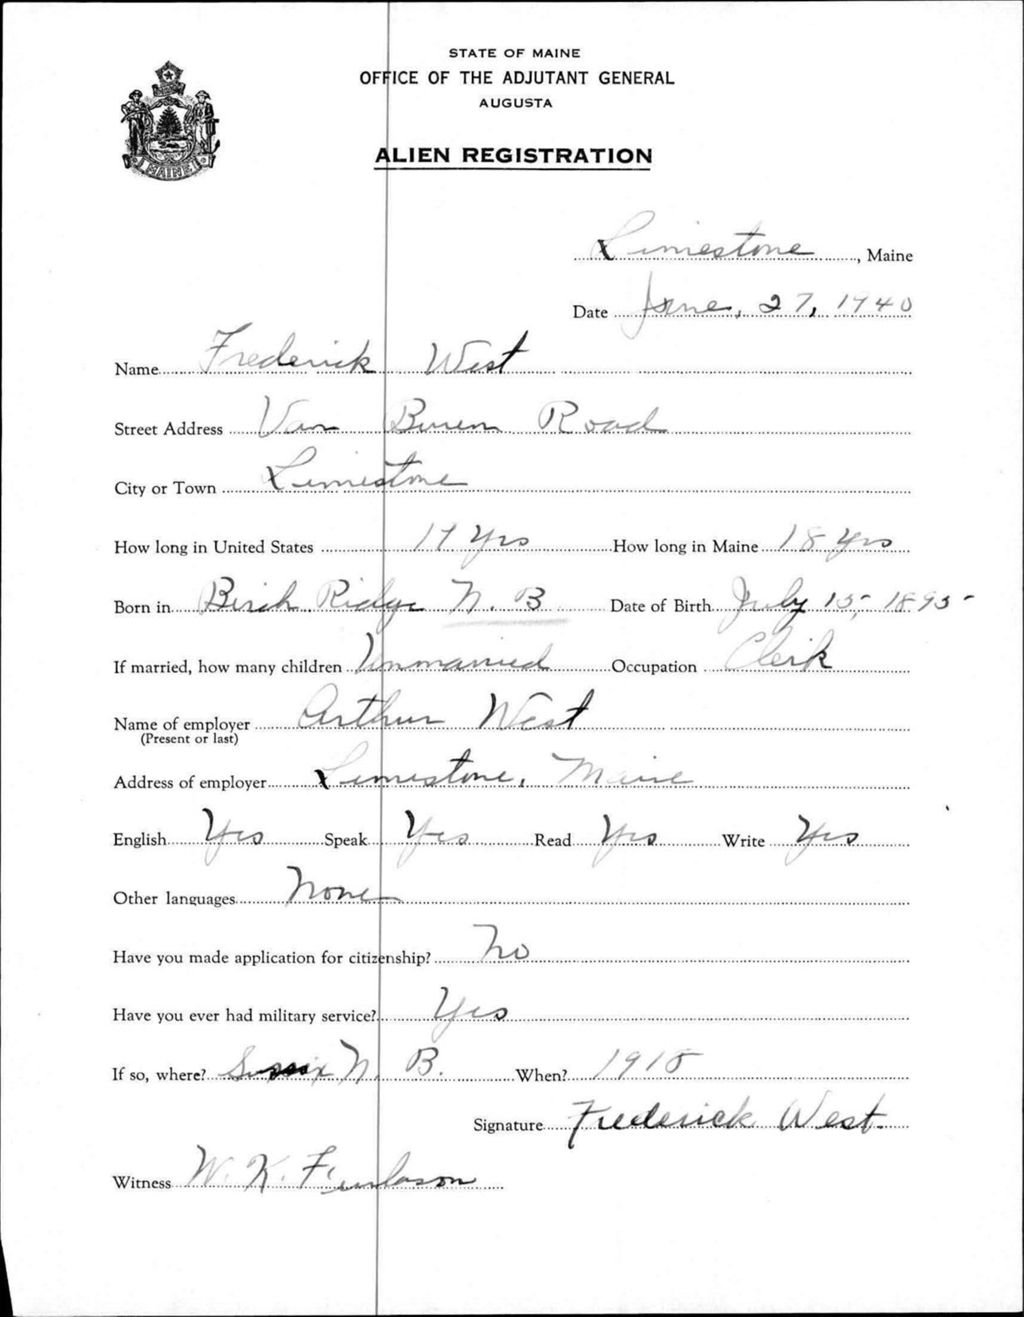 STATE OF MAINE
OFFICE OF THE ADJUTANT GENERAL
AUGUSTA
ALIEN REGISTRATION
MAINE
Limestone, Maine
Date June, 27, 1940
Name Frederick West
Street Address Van Buren Road
City or Town Limestone
How long in United States Yrs How long in Maine 18 Yrs
Born in Birch Ridge N. B Date of Birth July 15, 1895
If married, how many children Unmarried Occupation Clerk
Name of employer Arthur West
(Present or last)
Address of employer Limestone, Maine
English Yes Speak Yes Read Yes Write Yes
Other languages None
Have you made application for citizenship? No
Have you ever had military service? Yes
If so, where? Sussix N. B. When? 1918
Signature Frederick West.
Witness W. K. Finlason